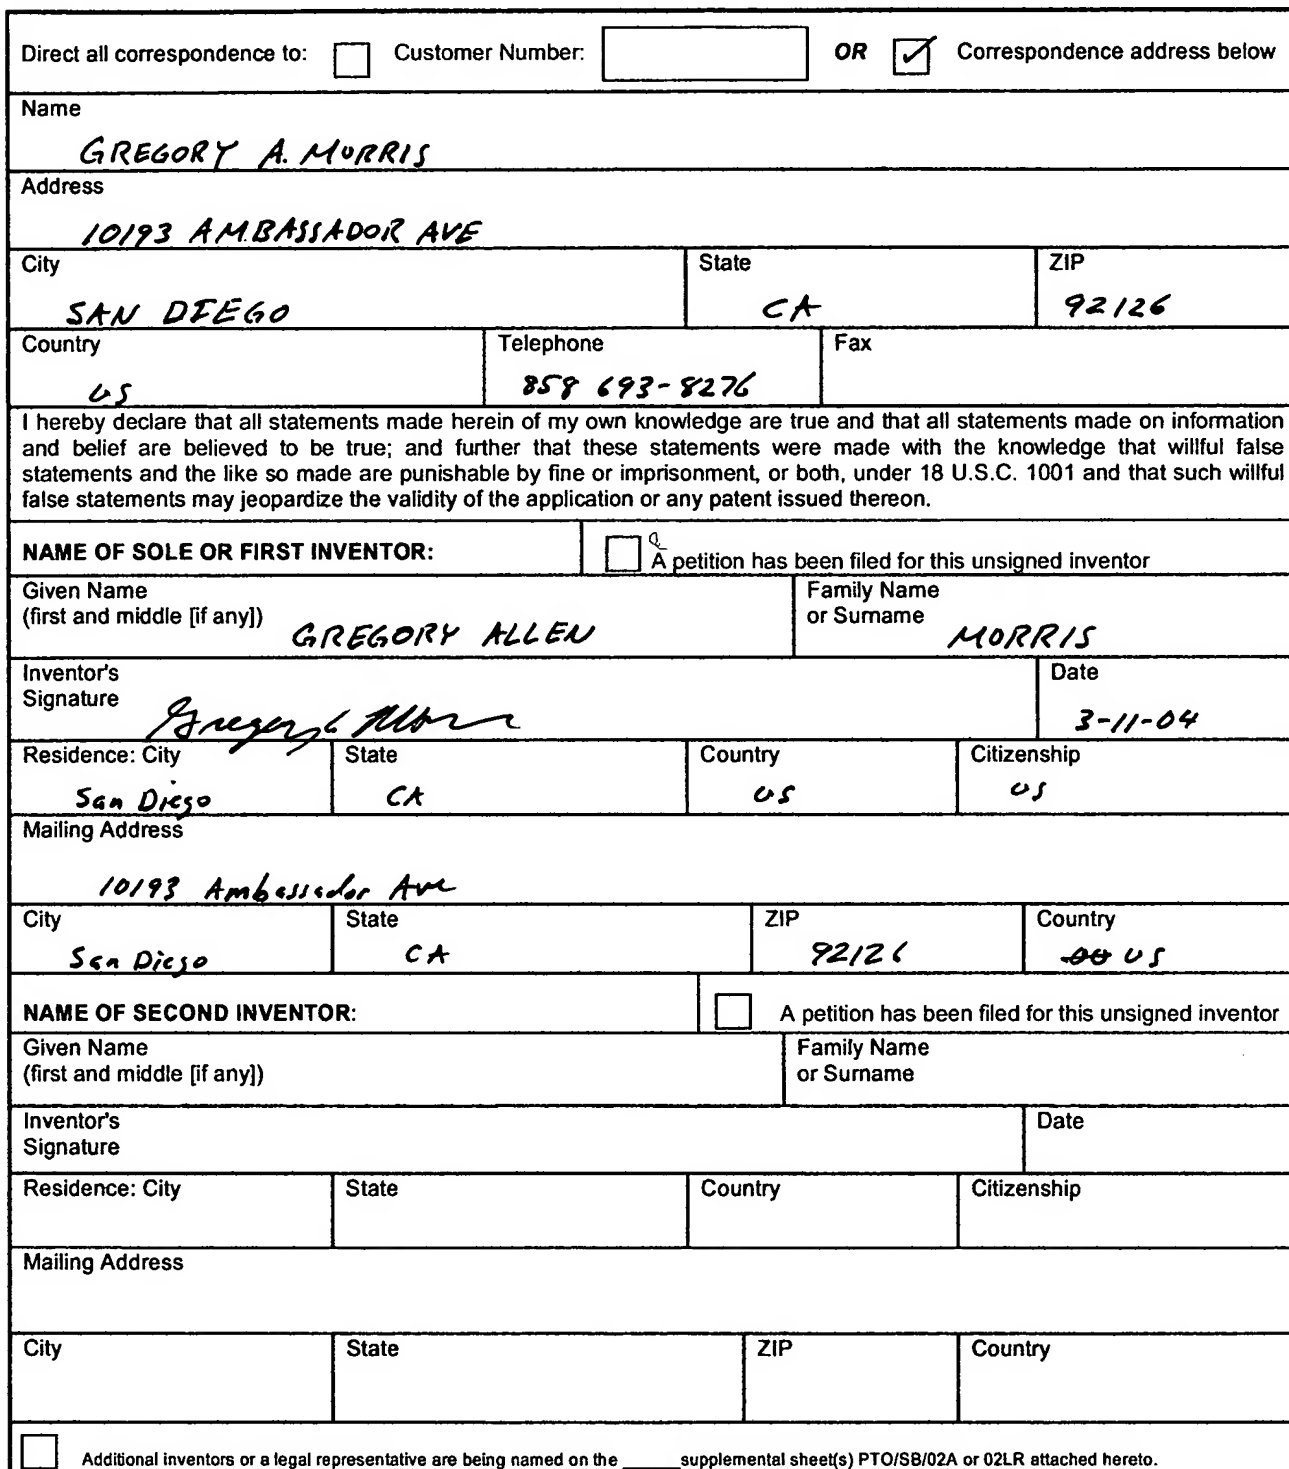 Direct all correspondence to: Customer Number: OR ✓ Correspondence address below
Name
GREGORY A. MORRIS
Address
10193 AMBASSADOR AVE
City State ZIP
SAN DIEGO CA 92126
Country Telephone Fax
US 858 693-8276
I hereby declare that all statements made herein of my own knowledge are true and that all statements made on information
and belief are believed to be true; and further that these statements were made with the knowledge that willful false
statements and the like so made are punishable by fine or imprisonment, or both, under 18 U.S.C. 1001 and that such willful
false statements may jeopardize the validity of the application or any patent issued thereon.
NAME OF SOLE OR FIRST INVENTOR: A petition has been filed for this unsigned inventor
Given Name Family Name
(first and middle [if any]) or Surname
GREGORY ALLEN MORRIS
Inventor's Date
Signature
3-11-04
Residence: City State Country Citizenship
San Diego CA US US
Mailing Address
10193 Ambassador Ave
City State ZIP Country
San Diego CA 92126 US
NAME OF SECOND INVENTOR: A petition has been filed for this unsigned inventor
Given Name Family Name
(first and middle [if any]) or Surname
Inventor's Date
Signature
Residence: City State Country Citizenship
Mailing Address
City State ZIP Country
Additional inventors or a legal representative are being named on the ______supplemental sheet(s) PTO/SB/02A or 02LR attached hereto.